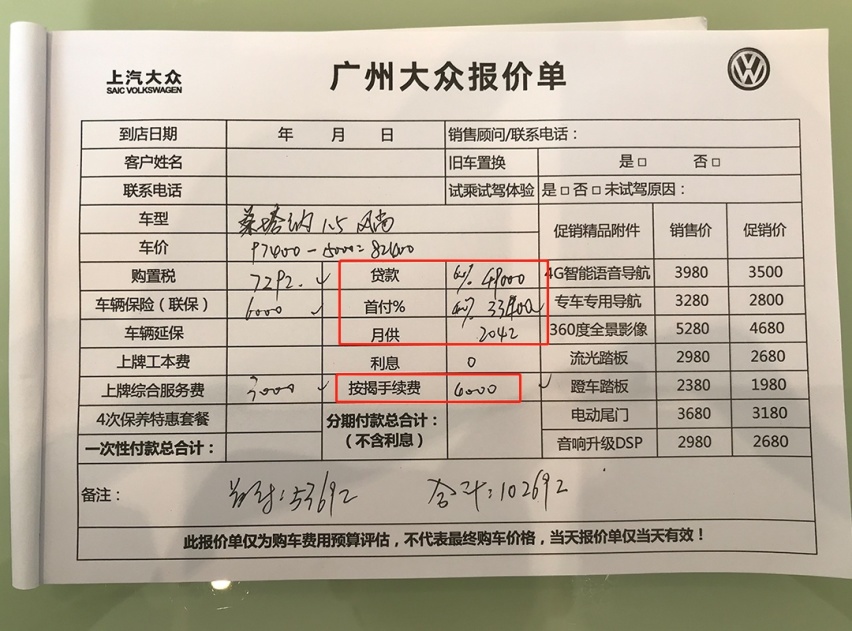 上汽大众
SAIC VOLKSWAGEN
广州大众报价单
到店日期 年 月 日 销售顾问/联系电话：
客户姓名 旧车置换 是□ 否□
联系电话 试乘试驾体验 是□ 否□ 未试驾原因：
车型 桑塔纳 1.5 风尚 促销精品附件 销售价 促销价
车价 97400-15000=82400
购置税 7292. ✓ 贷款 49000 4G智能语音导航 3980 3500
车辆保险（联保） 6000 ✓ 首付% 33400 ✓ 专车专用导航 3280 2800
车辆延保 月供 2042 360度全景影像 5280 4680
上牌工本费 利息 0 流光踏板 2980 2680
上牌综合服务费 ✓ 按揭手续费 6000 ✓ 蹬车踏板 2380 1980
4次保养特惠套餐 分期付款总合计：（不含利息） 电动尾门 3680 3180
一次性付款总合计： 音响升级DSP 2980 2680
备注： 首付：53692 合计：102692
此报价单仅为购车费用预算评估，不代表最终购车价格，当天报价单仅当天有效！